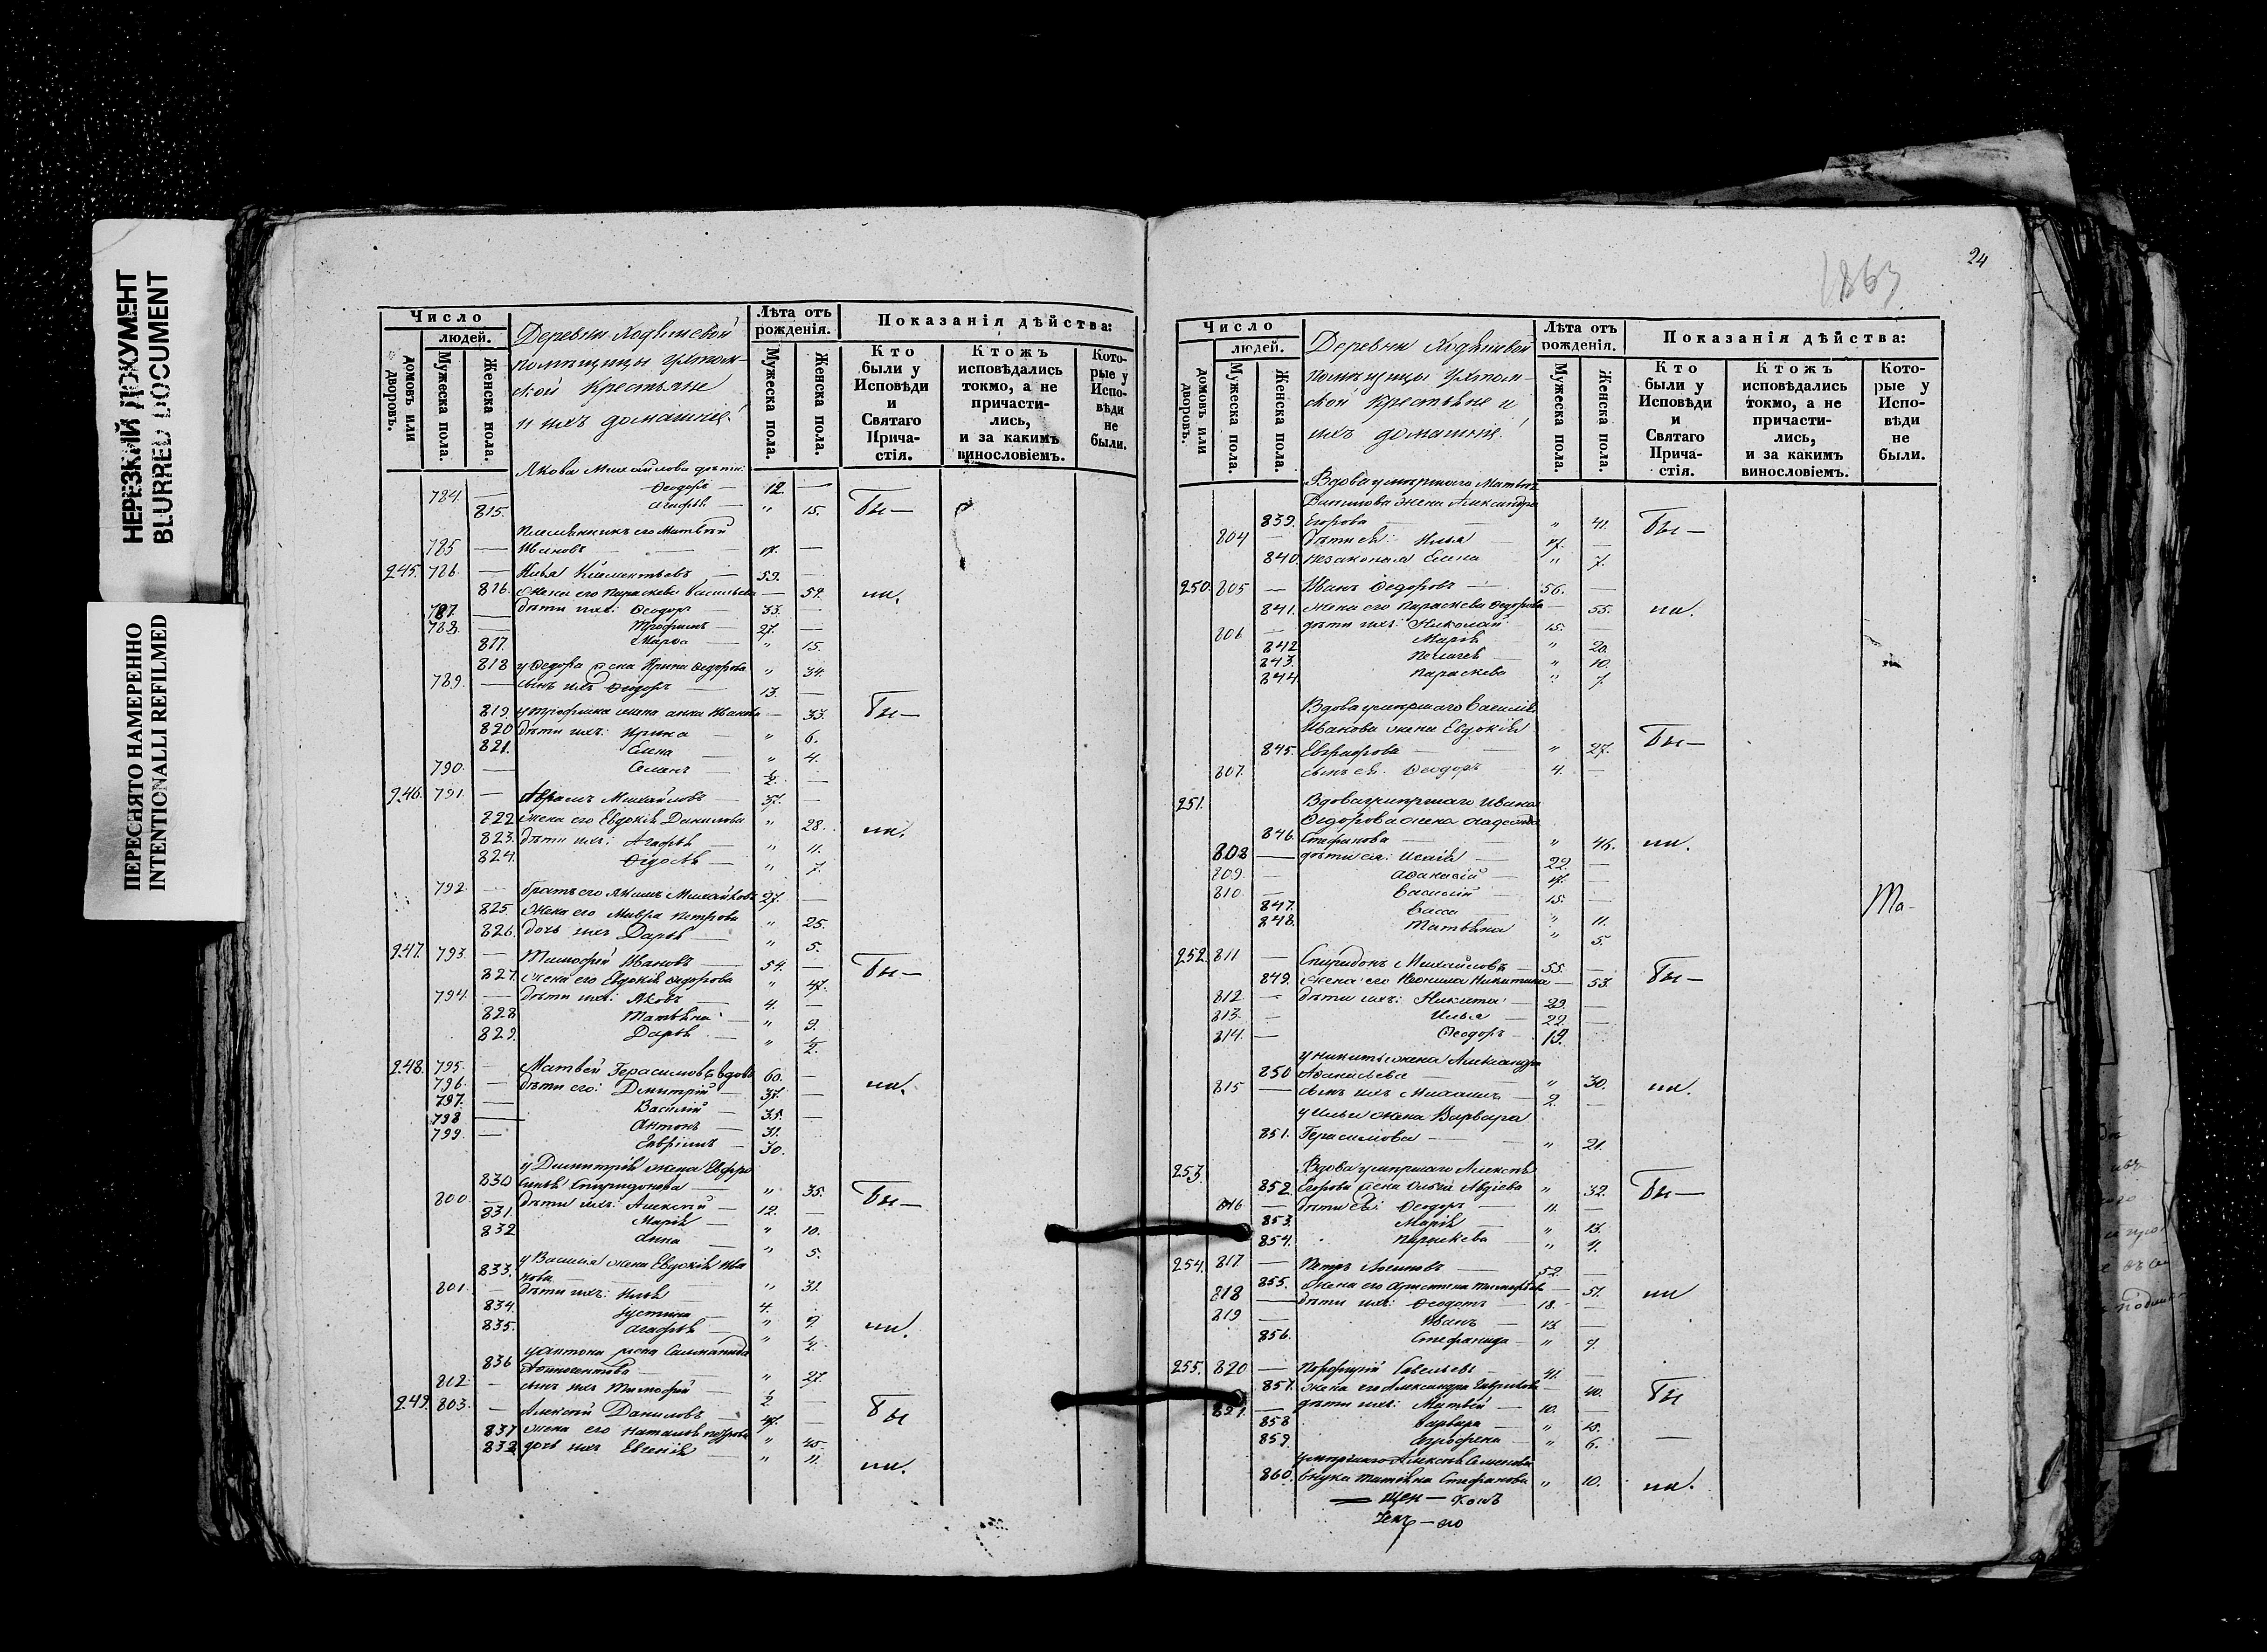 НЕРЕЗКИЙ ДОКУМЕНТ
BLURRED DOCUMENT
ПЕРЕСНЯТО НАМЕРЕННО
INTENTIONALLI REFILMED
Число
людей.
домовъ или дворовъ.
Мужеска пола.
Женска пола.
Деревни
помѣщицы
ской крестьяне
и ихъ домашніе:
Лѣта отъ рожденія.
Мужеска пола.
Женска пола.
Показанія дѣйства:
Кто были у Исповѣди и Святаго Причастія.
Ктожъ исповѣдались токмо, а не причастились, и за какимъ винословіемъ.
Которые у Исповѣди не были.
Якова Михайлова дѣти:
784. — Ѳеодоръ — 12. —
815. Агафья — " 15. Бы—
Племянникъ его Матвей
785 — Ивановъ — 17. —
245. 786 — Илья Климентьевъ — 59. —
816. Жена его Параскева Васильева — 54. ли.
787. — дѣти ихъ: Ѳеодоръ — 33. —
788. — Трофимъ — 27. —
817. Марѳа — " 15.
818 у Ѳедора жена Ирина Ѳедорова " 34.
789. — сынъ ихъ Ѳеодоръ — 13. —
819. у Трофима жена Анна Иванова — 33. Бы—
820 дѣти ихъ: Ирина — " 6.
821. Елена — " 4.
790. — Семенъ — ½. —
246. 791. — Аврамъ Михайловъ — 37. —
822 Жена его Евдокія Данилова " 28. ли.
823. дѣти ихъ: Агафья — " 11.
824. Ѳедосья — " 7.
792. — братъ его Якимъ Михайловъ 27. —
825. Жена его Мавра Петрова " 25.
826. дочь ихъ Дарья — " 5.
247. 793. — Тимофей Ивановъ — 54. — Бы—
827. Жена его Евдокія Ѳедорова " 47.
794. — дѣти ихъ: Яковъ — 4. —
828 Татьяна — " 9.
829. Дарья — " ½.
248. 795. — Матвей Герасимовъ вдовъ 60. —
796. — дѣти его: Дмитрій — 37. — ли.
797. — Василій — 35. —
798 — Антонъ — 31.
799. — Гавріилъ — 30.
у Димитрія жена Евфро
830 синья Спиридонова — " 35. Бы—
800. — дѣти ихъ: Алексѣй — 12. —
831. Марья — " 10.
832 Анна — " 5.
у Василья жена Евдокія Ива
833. нова — " 31.
801. — дѣти ихъ: Илья — 4.
834. Іустина — " 9. ли.
835. Агафья — " ½.
у Антона жена
836 — " 27.
802 — сынъ ихъ Тимофей — ½ —
249. 803. — Алексѣй Даниловъ — 47. — Бы
837 Жена его Наталья Петрова " 45.
838 дочь ихъ Евгенія — " 11. ли.
1863
24
Число
людей.
домовъ или дворовъ.
Мужеска пола.
Женска пола.
Деревни
помѣщицы
ской крестьяне и
ихъ домашніе:
Лѣта отъ рожденія.
Мужеска пола.
Женска пола.
Показанія дѣйства:
Кто были у Исповѣди и Святаго Причастія.
Ктожъ исповѣдались токмо, а не причастились, и за какимъ винословіемъ.
Которые у Исповѣди не были.
Вдова умершаго Матвея
Данилова жена Александра
839. Егорова — " 41. Бы—
804 — дѣти ея: Илья — 17. —
840. незаконная Елена " 7.
250. 805 — Иванъ Ѳедоровъ — 56. —
841. жена его Параскева Ѳедорова — 55. ли.
806 — дѣти ихъ: Николай 15. —
842 Марія " 20.
843. Пелагея — " 10.
844. Параскева " 7.
Вдова умершаго Василія
Иванова жена Евдокія
845. Евграфова — " 27. Бы—
807. сынъ ея: Ѳеодоръ — 4. —
251. Вдова умершаго Ивана
Ѳедорова жена
846. Стефанова — " 46. ли.
808 — дѣти ея: Исаія — 22. —
809. — Аѳанасій — 17. —
810. — Василій — 15. —
847. Васса — " 11.
848. Татьяна " 5.
Ма-
252. 811 — Спиридонъ Михайловъ — 55. — Бы—
849. Жена его Неонила Никитина — 53.
812 — дѣти ихъ: Никита — 29. —
813. — Илья — 22. —
814. — Ѳеодоръ — 19.
у Никиты жена Александра
850 Аѳанасьева " 30. ли.
815 — сынъ ихъ — 2. —
у Ильи жена Варвара
851. Герасимова — " 21.
253. Вдова умершаго Алексѣя
852. Егорова жена Ольга Авдіева " 32. Бы—
816 — дѣти ея: Ѳеодоръ — 11. —
853. Марія — " 13.
854. Параскева — " 4.
254. 817 — Петръ — 52. —
855. Жена его Христина Тимофѣева — 51. ли
818 — дѣти ихъ: Ѳеодотъ — 18. —
819 — Иванъ — 13. —
856. Стефанида — " 9.
255. 820 — Порфирій Савельевъ — 41. —
857. жена его Александра Гаврилова — 40. Бы
821. — дѣти ихъ: Матвій — 10. —
858 Варвара — " 15.
859. Агрофена — " 6. —
умершаго Алексѣя Семенова
860. внука Татьяна Стефанова " 10. ли.
— щен — комъ